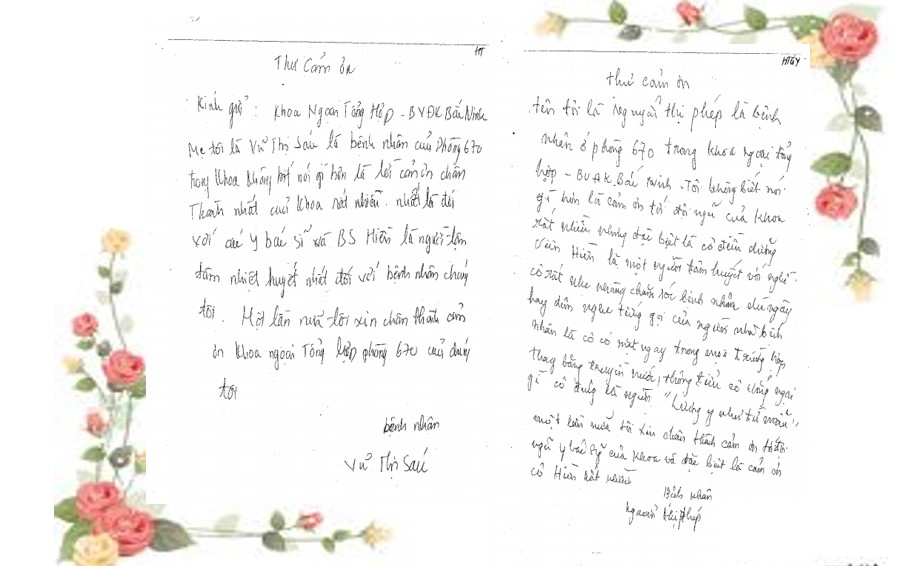 HT
Thư Cảm ơn
Kính gửi : Khoa Ngoại Tổng Hợp - BVĐK Bắc Ninh
Mẹ tôi là Vũ Thị Sáu là bệnh nhân của Phòng 670
trong Khoa không biết nói gì hơn là lời cảm ơn chân
Thành nhất của Khoa rất nhiều. nhất là đối
với các y bác sĩ và BS Hiền là người tận
tâm nhiệt huyết nhất đối với bệnh nhân chúng
tôi. Một lần nữa tôi xin chân thành cảm
ơn Khoa ngoại Tổng hợp phòng 670 của chúng
tôi
bệnh nhân
Vũ Thị Sáu
HTGY
thư cảm ơn
tên tôi là Nguyễn thị phép là bệnh
nhân ở phòng 670 trong khoa ngoại tổng
hợp - BVĐK Bắc Ninh. Tôi không biết nói
gì hơn là cảm ơn tới đội ngũ của Khoa
rất nhiều nhưng đặc biệt là cô điều dưỡng
viên Hiền là một người tâm huyết với nghề.
cô rất nhẹ nhàng chăm sóc bệnh nhân
hay đến nghe tiếng gọi của người nhà bệnh
nhân là cô có mặt ngay trong mọi trường hợp
thay băng truyền nước, thông tiểu cô không ngại
gì cô đúng là người "Lương y như từ mẫu"
một lần nữa tôi xin chân thành cảm ơn
ngũ y bác sỹ của khoa và đặc biệt là cảm ơn
cô Hiền rất nhiều
Bệnh nhân
Nguyễn thị phép